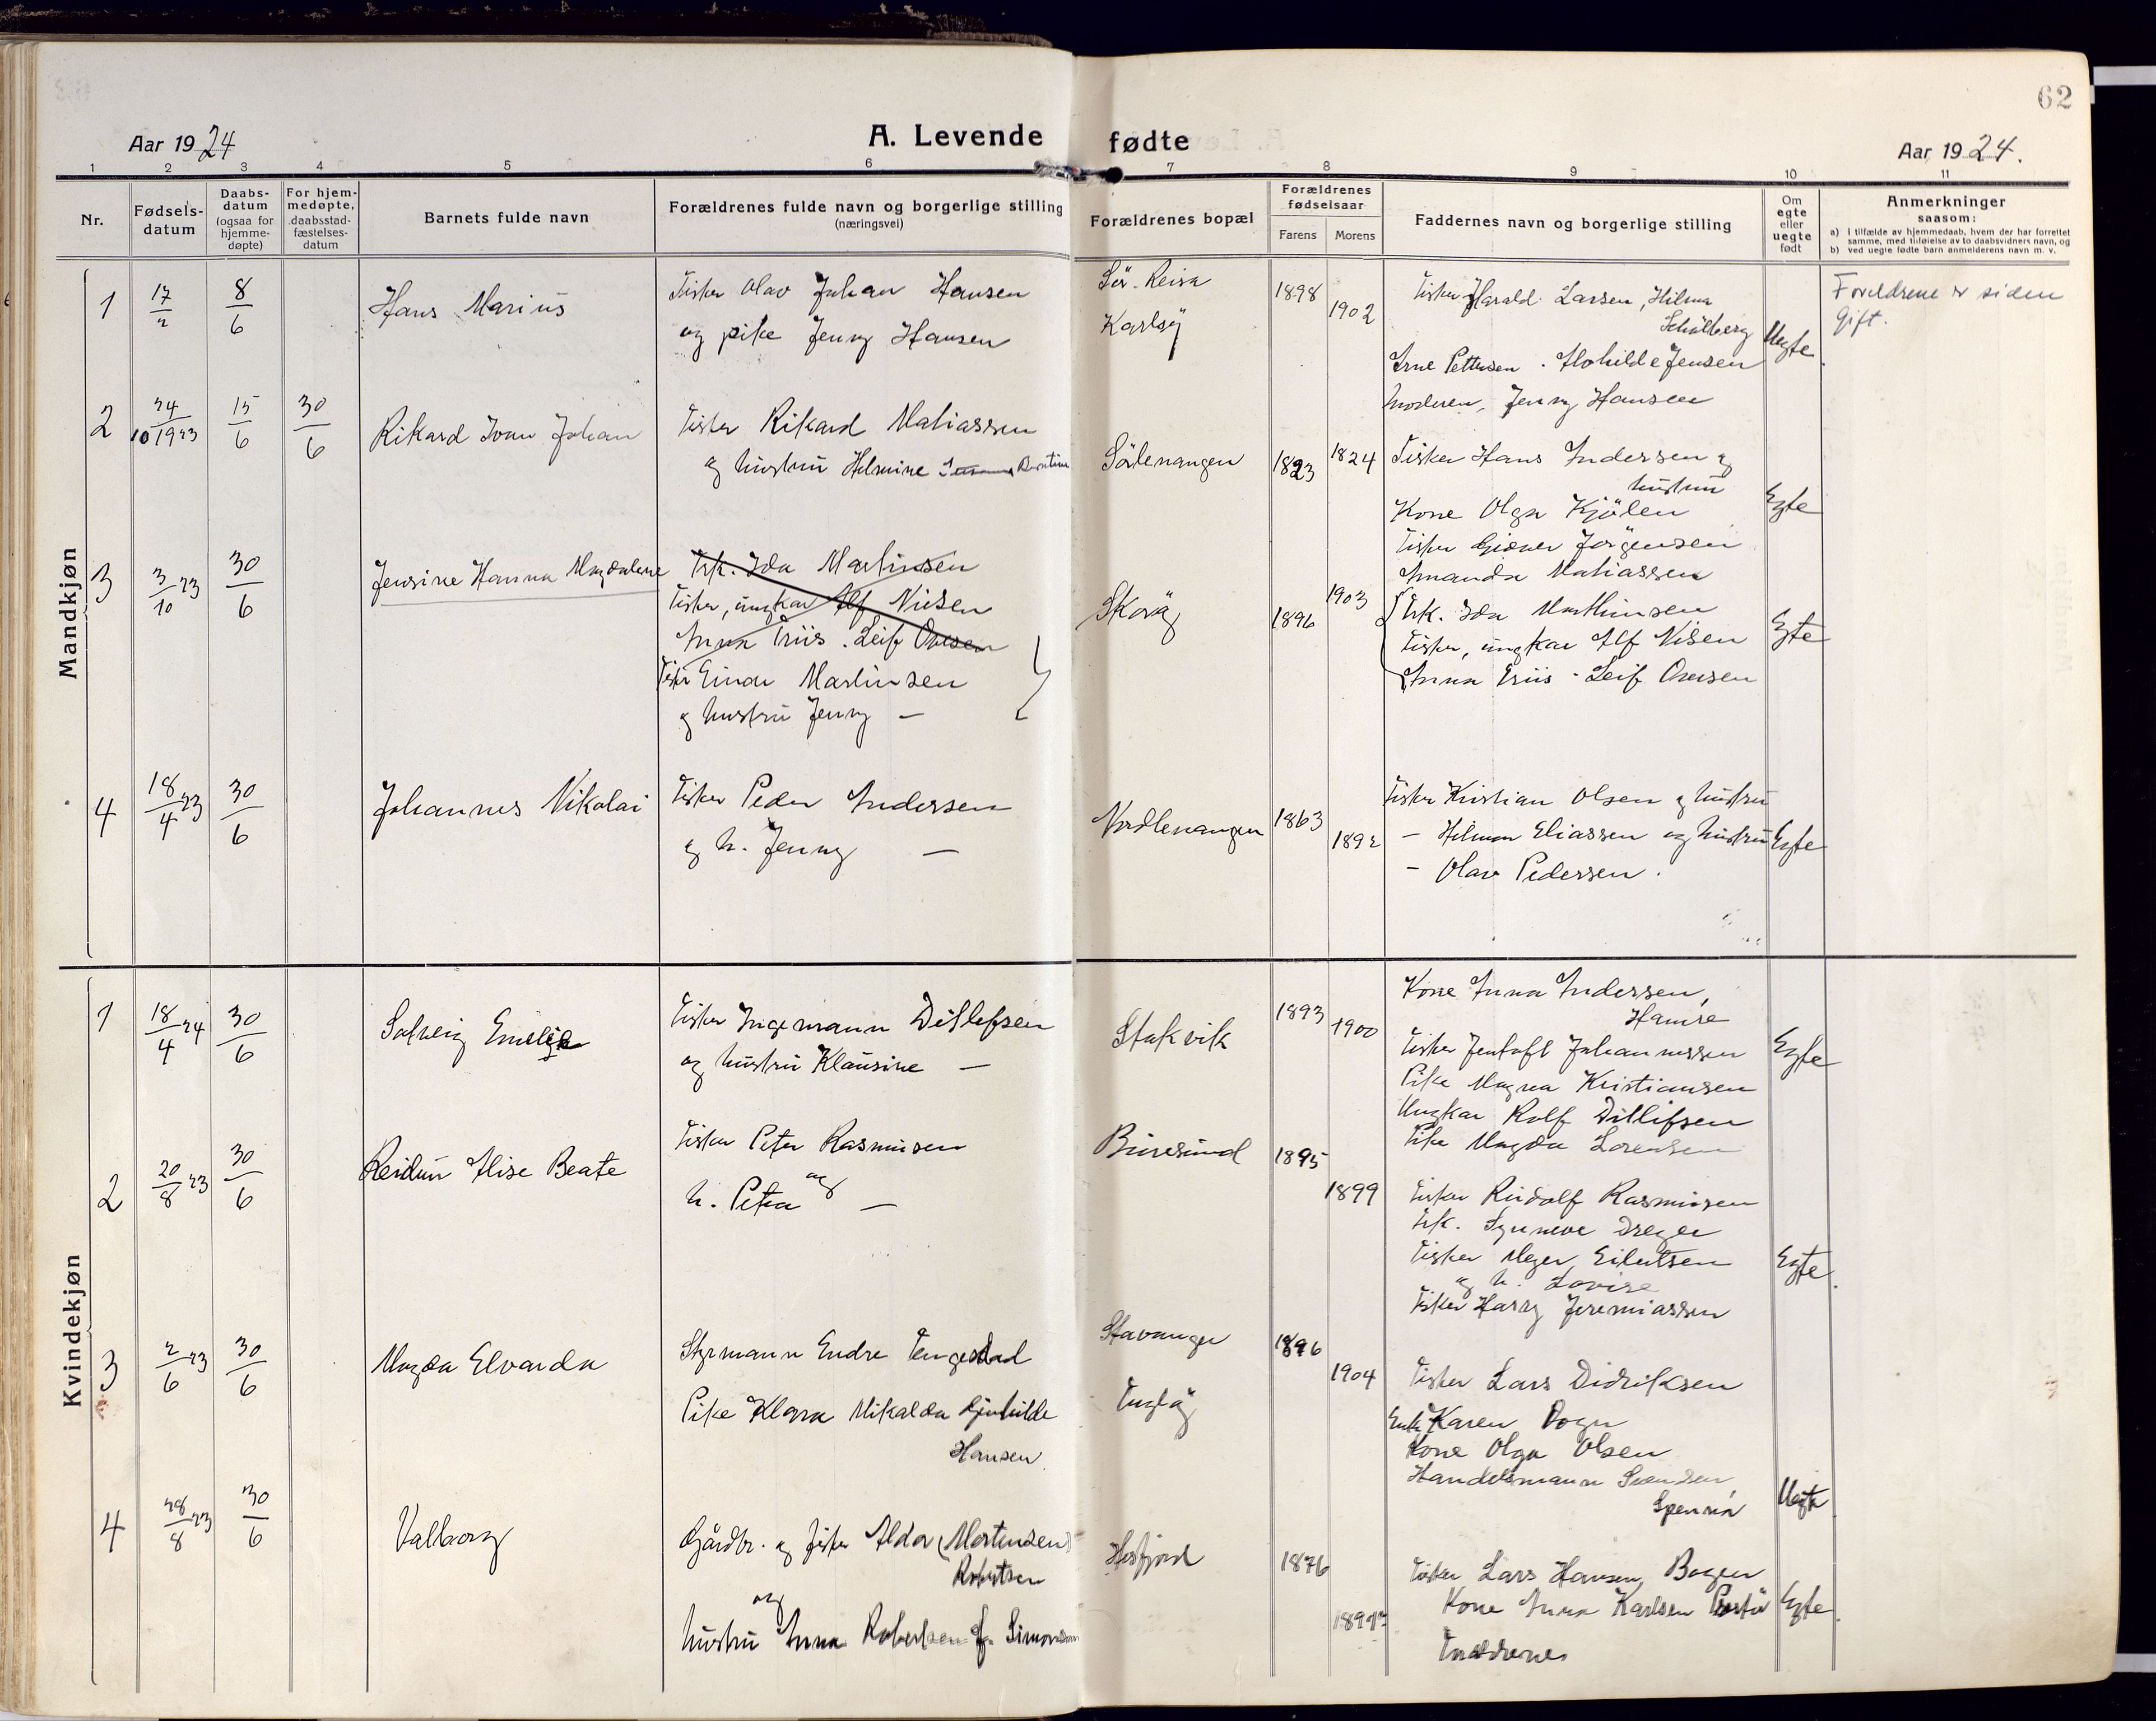 62
Aar 1924
A. Levende fødte
Aar 1924.
1 2 3 4 5 6 7 8 9 10 11
Nr.
Fødsels-
datum
Daabs-
datum
(ogsaa for
hjemme-
døpte)
For hjem-
medøpte,
daabsstad-
fæstelses-
datum
Barnets fulde navn
Forældrenes fulde navn og borgerlige stilling
(næringsvei)
Forældrenes bopæl
Forældrenes
fødselsaar
Farens Morens
Faddernes navn og borgerlige stilling
Om
egte
eller
uegte
født
Anmerkninger
saasom:
a) i tilfælde av hjemmedaab, hvem der har forrettet
samme, med tilføielse av to daabsvidners navn, og
b) ved uegte fødte barn anmelderens navn m. v.
Mandkjøn
1
17/2
8/6
Hans Marius
Fisker Olav Johan Hansen
og pike Jenny Hansen
Sør-Reisa
Karlsöy
1898
1902
Fisker Harald Larsen, Hilma
Schölberg
Arne Pettersen . Jensen
Moderen, Jenny Hansen
Uegte
Foreldrene er siden
gift.
2
24/10 1923
15/6
30/6
Rikard Ivan Johan
Fisker Rikard Matiassen
og hustru Helmine
Sörlenangen
1823
1824
Fisker Hans Andersen og
hustru
Kone Olga Kjölen
Fisker Jörgensen
Amanda Matiassen
Egte
3
3/10 23
30/6
Jensine Hanna Magdalene
Frk. Ida Martinsen
Fisker, ungkar Alf Nilsen
Anna Friis . Leif Ovesen
Fisker Einar Martinsen
og hustru Jenny —
1896
1903
Frk. Ida Marthinsen
Fisker, ungkar Alf Nilsen
Anna Friis - Leif Ovesen
Egte
4
18/4 23
30/6
Johannes Nikolai
Fisker Peder Andersen
og h. Jenny —
Nordlenangen
1863
1892
Fisker Kristian Olsen og hustru
— Hilmar Eliassen og hustru
— Olav Pedersen.
Egte
Kvindekjøn
1
18/4 24
30/6
Solveig Emelie
Fisker Ingemann Ditlefsen
og hustru Klausine —
Stakvik
1893
1900
Kone Anna Andersen,
Hamre
Fisker Jentoft Johannessen
Pike Magna Kristiansen
Ungkar Rolf Ditlefsen
Pike Magda Lorensen
Egte
2
20/8 23
30/6
Reidun Alise Beate
Fisker Peter Rasmussen
og
h. Petra —
Buresund
1895
1899
Fisker Rudolf Rasmussen
Frk. Synnöve Dreyer
Fisker Meyer Eilertsen
og h. Lovise
Fisker Harry Jeremiassen
Egte.
3
2/6 23
30/6
Magda Elvarda
Styrmann Endre Tengesdal
Pike Klara Mikalda
Hansen.
Stavanger
1896
1904
Fisker Lars Didriksen
Enke Karen
Kone Olga Olsen
Handelsmann Svendsen,
Uegte
4
28/8 23
30/6
Valborg
Gårdbr. og fisker Aldor (Mortensen)
Robertsen
og
hustru Anna Robertsen f. Simonsen
1876
Fisker Lars Hansen, Bogen
Kone Anna Karlsen
Forældrene
Egte.